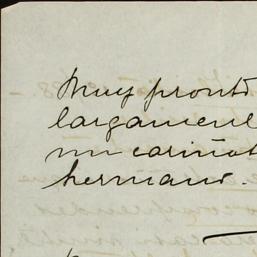 Muy pronto
largament
un cariñot
hermano.